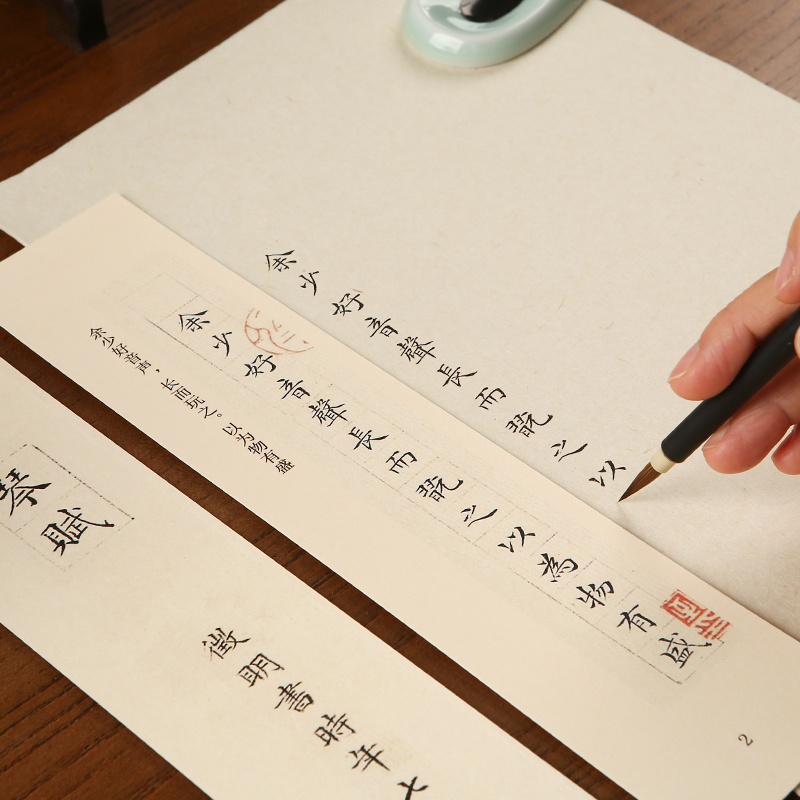 余少好音聲長而翫之以
余少好音聲長而翫之以為物有盛
余少好音声，长而玩之。以为物有盛
2
琴賦
徵明書時年七